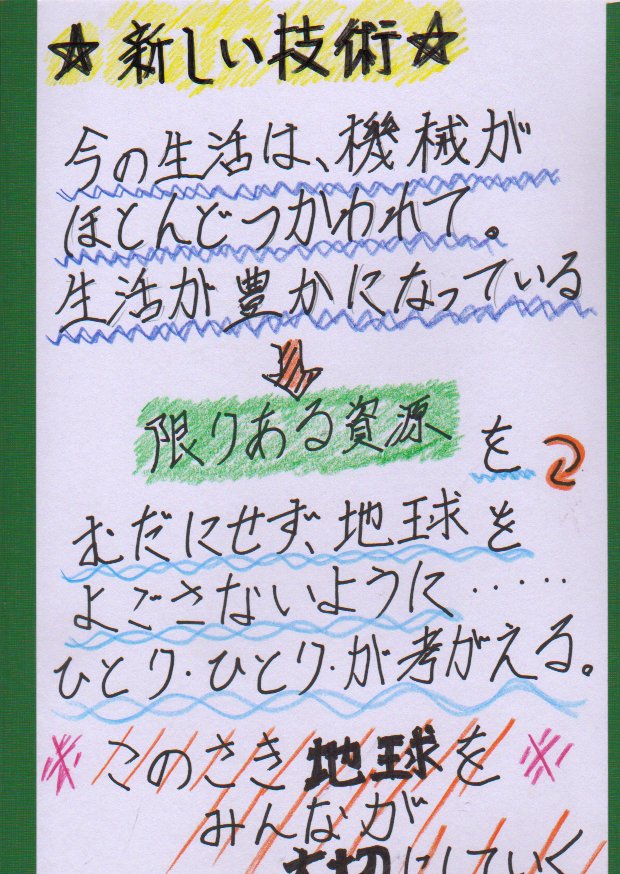 ☆新しい技術☆
今の生活は、機械が
ほとんどつかわれて。
生活が豊かになっている
限りある資源を
むだにせず、地球を
よごさないように・・・・・
ひとり・ひとり・が考がえる。
※このさき地球を※
みんなが
大切にしていく